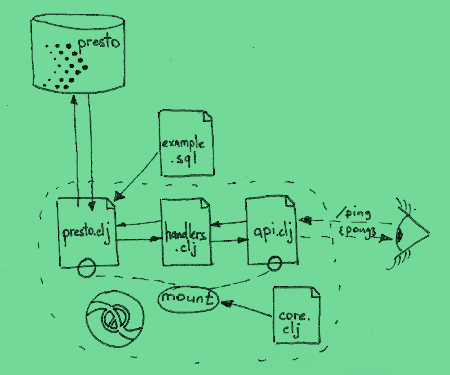 presto
example
.sql
presto.clj
handlers
.clj
api.clj
/ping
{pong}
mount
core.
clj